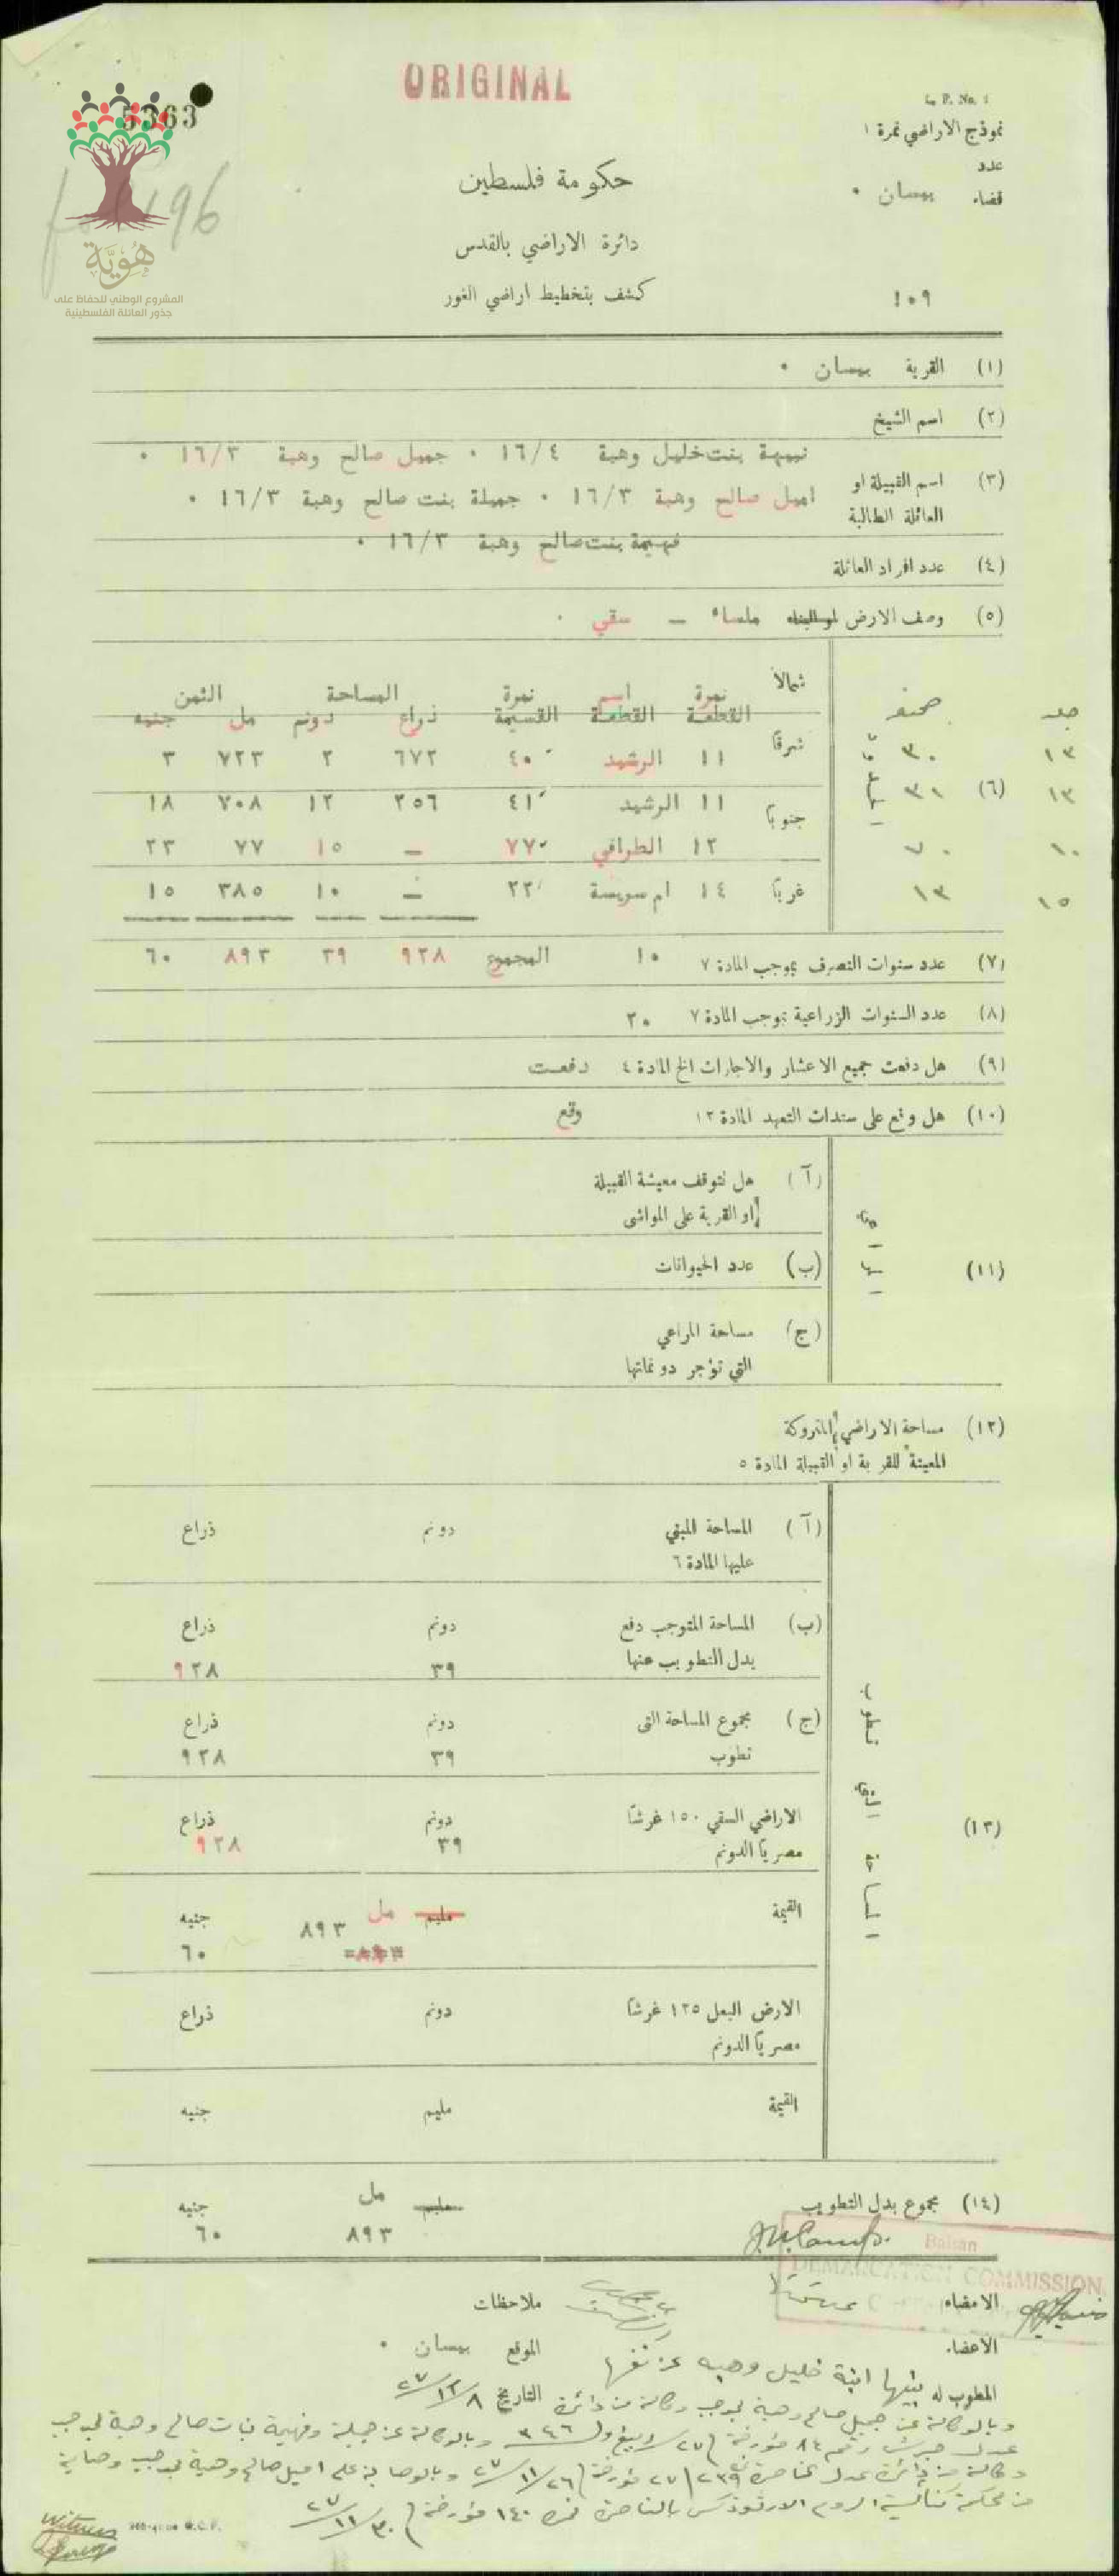 ORIGINAL
5363
L. P. No. 1
نموذج الاراضي نمرة ١
عدد
قضاء بيسان ٠
حكومة فلسطين
دائرة الاراضي بالقدس
كشف بتخطيط اراضي الغور
١٠٩
هُوِيَّة
المشروع الوطني للحفاظ على
جذور العائلة الفلسطينية
(١) القرية بيسان ٠
(٢) اسم الشيخ
نبيهة بنت خليل وهبة ١٦/٤ ٠ جميل صالح وهبة ١٦/٣ ٠
(٣) اسم القبيلة او العائلة الطالبة
اميل صالح وهبة ١٦/٣ ٠ جميلة بنت صالح وهبة ١٦/٣ ٠
فهيمة بنت صالح وهبة ١٦/٣ ٠
(٤) عدد افراد العائلة
(٥) وصف الارض ملساء – سقي ٠
شمالاً نمرة القطعة اسم القطعة نمرة القسيمة المساحة ذراع دونم الثمن مل جنيه
شرقاً ١١ الرشيد ٤٠ ٦٧٢ ٢ ٧٢٣ ٣
(٦) ١١ الرشيد ٤١ ٢٥٦ ١٢ ٧٠٨ ١٨
جنوباً ١٢ الطرافي ٧٧ – ١٥ ٧٧ ٢٣
غرباً ١٤ ام سويسة ٢٢ – ١٠ ٣٨٥ ١٥
جلد صحيفة
١٣ ٣٠
١٣ ٣١
١٠ ٧٠
١٥ ١٣
المجموع ٩٢٨ ٣٩ ٨٩٣ ٦٠
(٧) عدد سنوات التصرف بموجب المادة ٧ ١٠
(٨) عدد السنوات الزراعية بموجب المادة ٧ ٢٠
(٩) هل دفعت جميع الاعشار والاجارات الخ المادة ٤ دفعت
(١٠) هل وقع على سندات التعهد المادة ١٢ وقع
(١١)
(آ) هل تتوقف معيشة القبيلة
او القرية على المواشي
(ب) عدد الحيوانات
(ج) مساحة المراعي
التي تؤجر دونماتها
(١٢) مساحة الاراضي المتروكة
المعينة للقرية او القبيلة المادة ٥
(١٣)
(آ) المساحة المبني دونم ذراع
عليها المادة ٦
(ب) المساحة المتوجب دفع دونم ذراع
بدل التطويب عنها ٣٩ ٩٢٨
(ج) مجموع المساحة التي دونم ذراع
تطوب ٣٩ ٩٢٨
الاراضي السقي ١٥٠ غرشاً دونم ذراع
مصرياً الدونم ٣٩ ٩٢٨
القيمة مليم مل جنيه
٨٩٣ ٦٠
الارض البعل ١٢٥ غرشاً دونم ذراع
مصرياً الدونم
القيمة مليم جنيه
(١٤) مجموع بدل التطويب مليم مل جنيه
٨٩٣ ٦٠
Baisan
DEMARCATION COMMISSION
الامضاء ملاحظات
الاعضاء الموقع بيسان ٠
المطوب له نبيها ابنة خليل وهبه عن نفسها التاريخ ٨/١٢/٢٧
وبالوكالة عن جميل صالح وهبة بموجب وكالة من دائرة
وبالوكالة عن جميلة وفهيمة بنات صالح وهبة بموجب
وبالوصاية على اميل صالح وهبة بموجب وصاية
من محكمة كنائسية الروم الارثوذكس بالناصرة نمرة ١٤٠ مؤرخة ٣٠/١١/٢٧
Witness